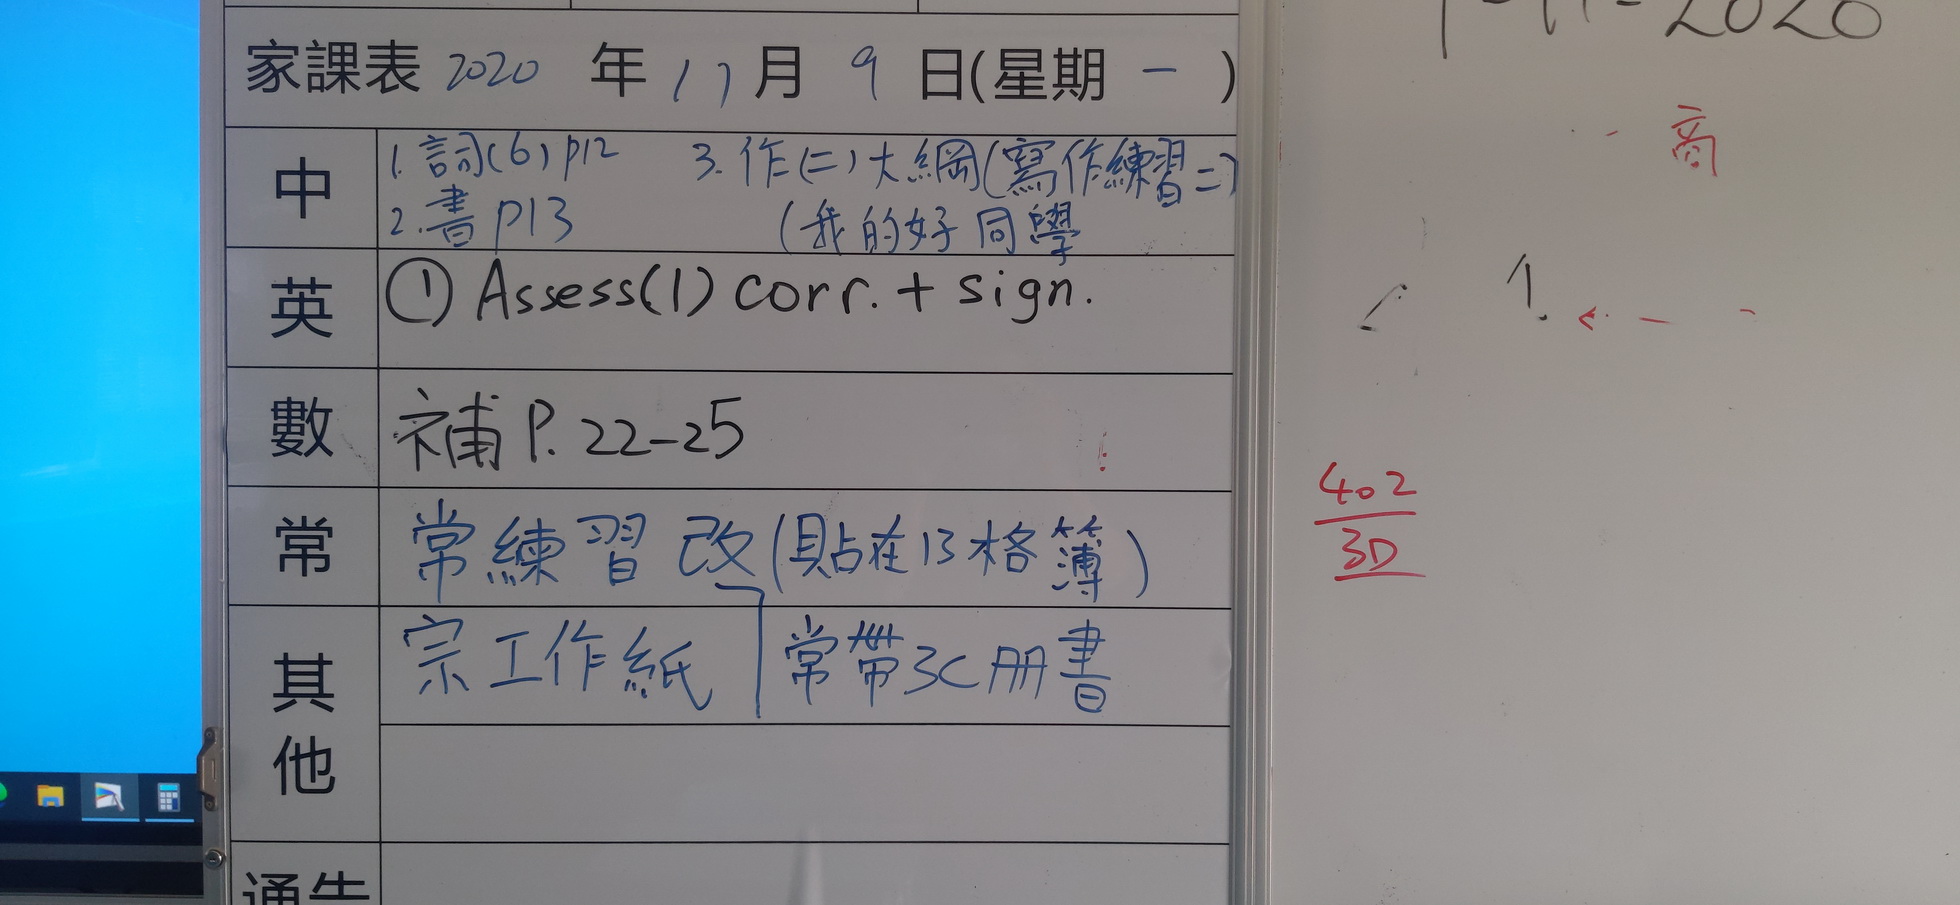 家課表 2020 年 11 月 9 日(星期 一 )
中
1. 詞(6) p12 3. 作(二) 大綱(寫作練習二)
2. 書 p13 (我的好同學
英
① Assess(1) corr. + sign.
數
補 P. 22-25
常
常練習 改 (貼在13格簿)
其他
宗工作紙 常帶3C冊書
通告
2020
商
1.
402
3D